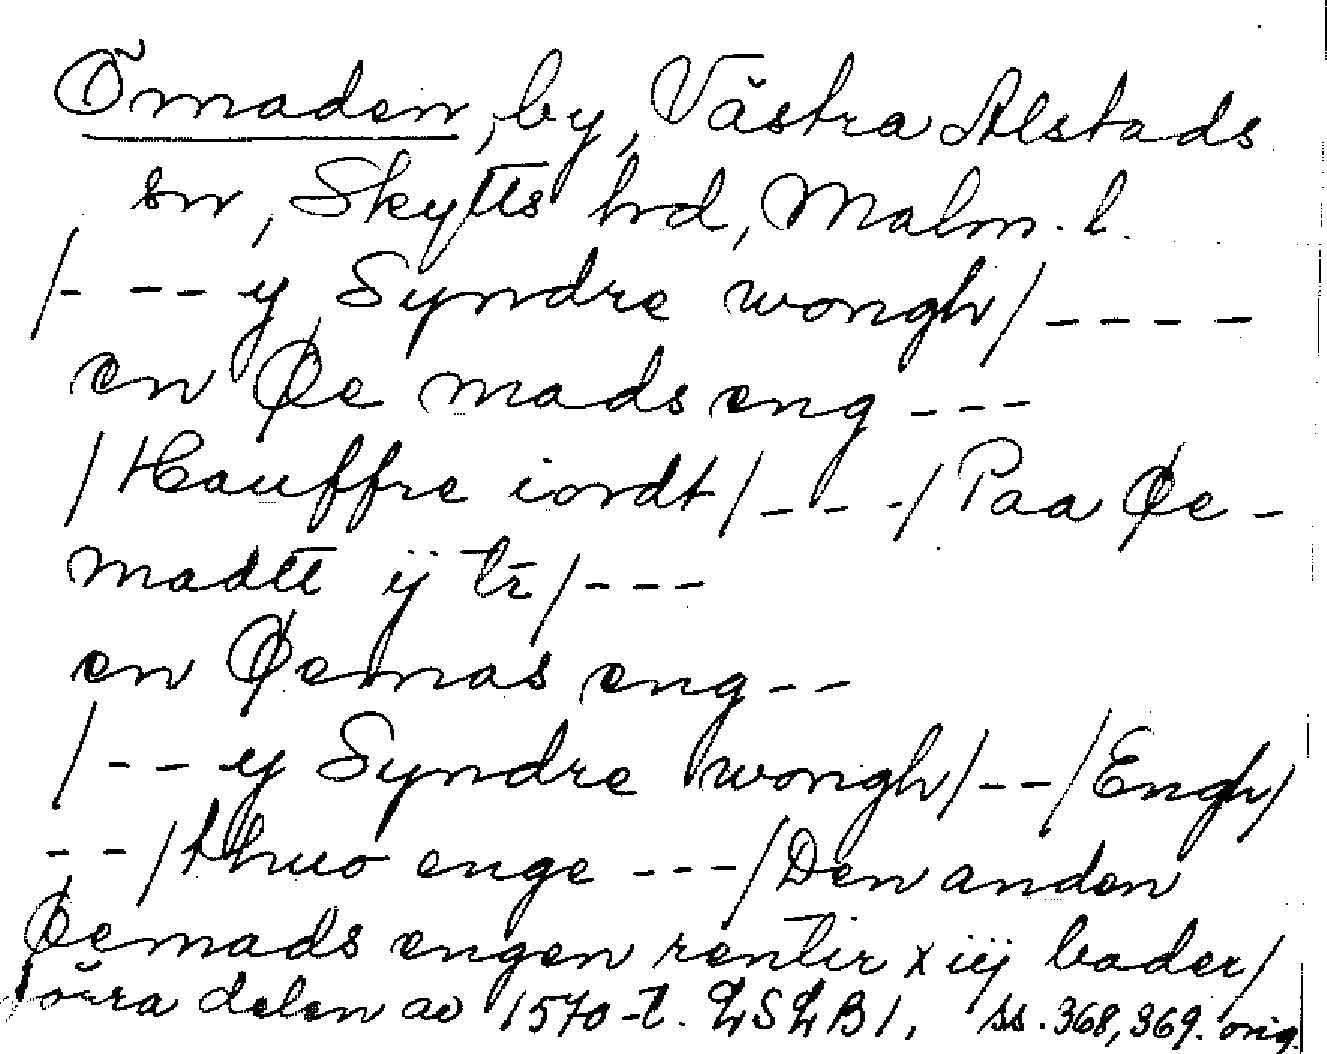 Ömaden, by, Västra Alstads
sn, Skytts hrd, Malm. l.
/- -- y Syndre wongh/ ----
en Øe mads eng ---
/Hauffre iordt/ -- -/ Paa Øe -
madtt ij tr /---
en Øemas eng --
/-- y Syndre wongh/--/Engh/
--/thuo enge ---/Den anden
Øemads engen rentir x iij bader/
övra delen av 1570-t. LSLB1, ss. 368, 369. orig.